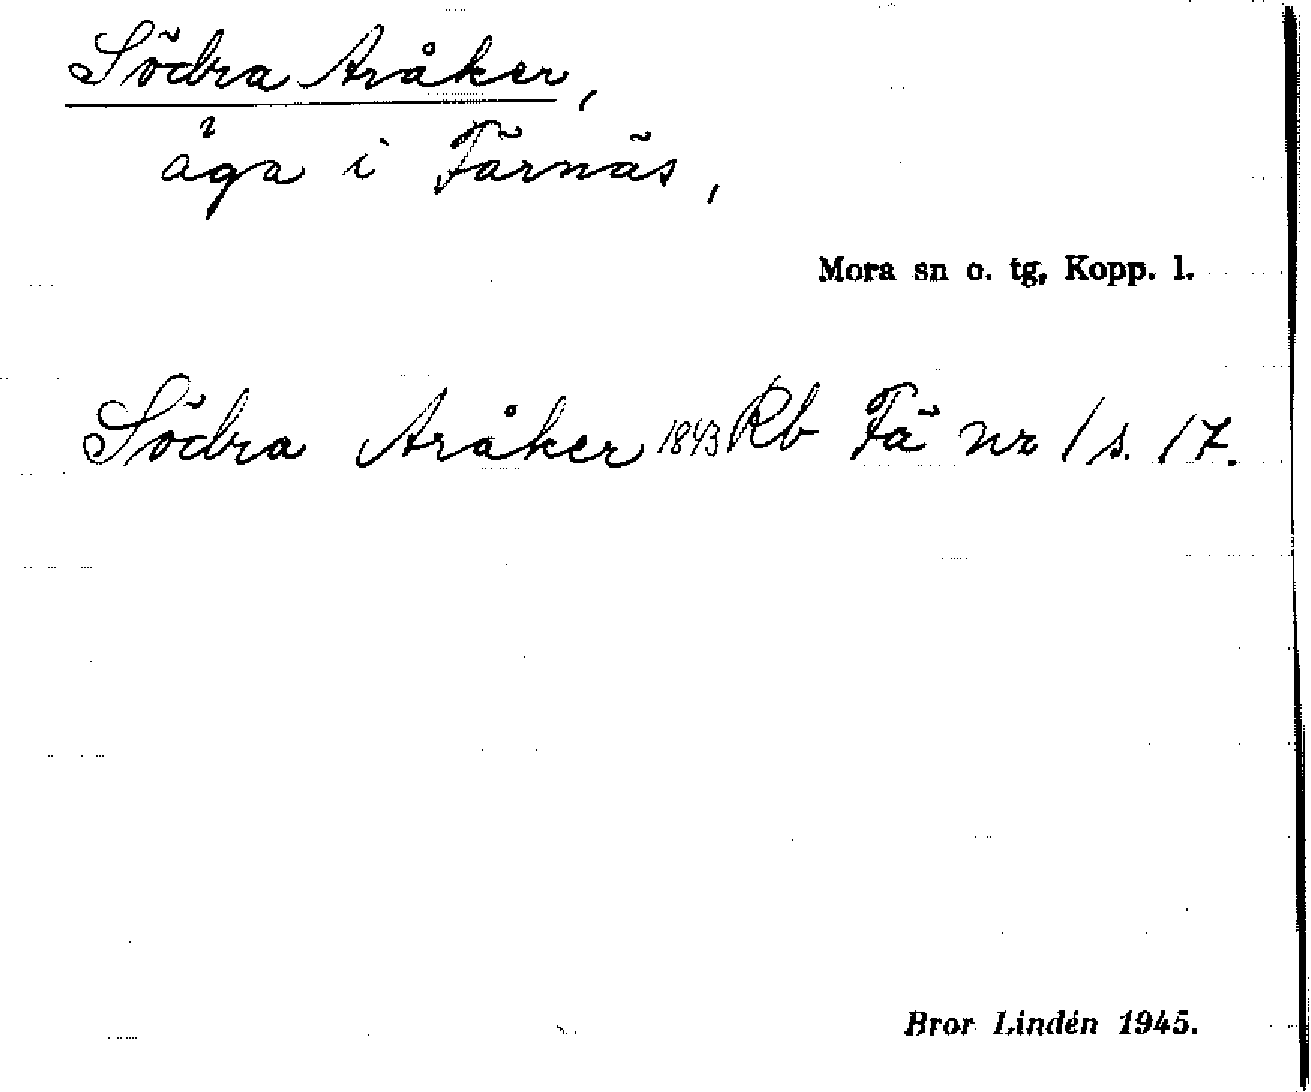 Södra Aråker,
åga i Färnäs,
Mora sn o. tg, Kopp. l.
Södra Aråker 1843 Rb Fä nr 1 s. 17.
Bror Lindén 1945.